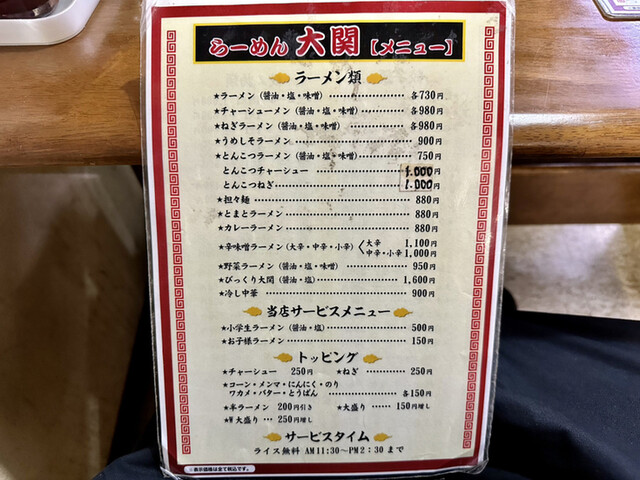 らーめん 大関【メニュー】
ラーメン類
★ラーメン（醤油・塩・味噌）‥‥‥‥‥‥ 各730円
★チャーシューメン（醤油・塩・味噌）‥‥‥‥ 各980円
★ねぎラーメン（醤油・塩・味噌）‥‥‥‥‥ 各980円
★うめしそラーメン‥‥‥‥‥‥‥‥ 900円
★とんこつラーメン（醤油・塩・味噌）‥‥‥‥ 750円
とんこつチャーシュー‥‥‥‥‥‥ 1.000円
とんこつねぎ‥‥‥‥‥‥‥‥‥ 1.000円
★担々麺‥‥‥‥‥‥‥‥‥‥‥ 880円
★とまとラーメン‥‥‥‥‥‥‥‥‥ 880円
★カレーラーメン‥‥‥‥‥‥‥‥‥ 880円
★辛味噌ラーメン（大辛・中辛・小辛）〈 大辛 1,100円
中辛・小辛 1,000円
★野菜ラーメン（醤油・塩・味噌）‥‥‥‥‥ 950円
★びっくり大関（醤油・塩）‥‥‥‥‥‥ 1,600円
★冷し中華‥‥‥‥‥‥‥‥‥‥ 900円
当店サービスメニュー
★小学生ラーメン（醤油・塩）‥‥‥‥‥‥ 500円
★お子様ラーメン‥‥‥‥‥‥‥‥‥ 150円
トッピング
★チャーシュー 250円 ★ねぎ‥‥‥‥ 250円
★コーン・メンマ・にんにく・のり
ワカメ・バター・とうばん ‥‥‥‥‥ 各150円
★半ラーメン 200円引き ★大盛り‥‥ 150円増し
★W大盛り‥‥ 250円増し
サービスタイム
ライス無料 AM11:30～PM2:30まで
○表示価格は全て税込です。